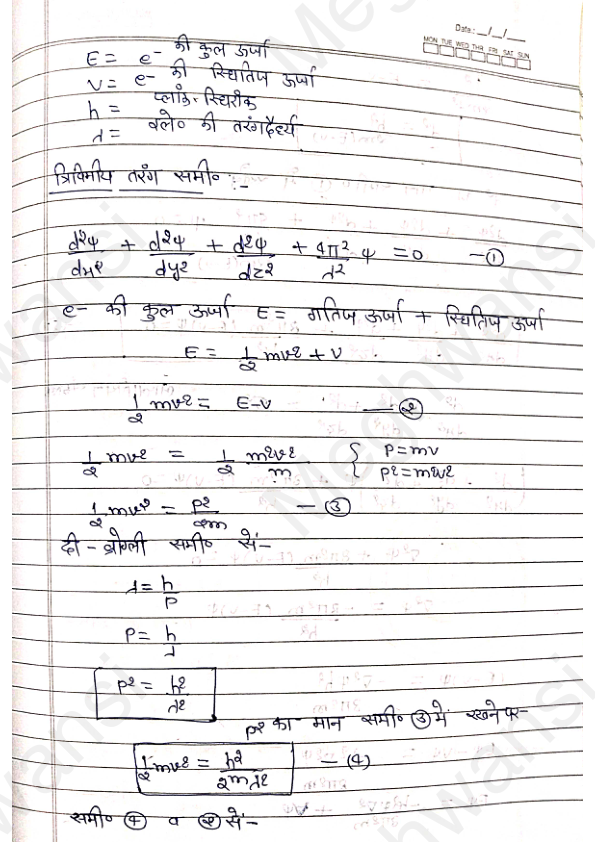 Date: __/__/__
MON TUE WED THR FRI SAT SUN
E = e⁻ की कुल ऊर्जा
V = e⁻ की स्थितिज ऊर्जा
h = प्लांक स्थिरांक
λ = इले० की तरंगदैर्ध्य
त्रिविमीय तरंग समी० :-
d²ψ/dx² + d²ψ/dy² + d²ψ/dz² + 4π²/λ² ψ = 0 — ①
e⁻ की कुल ऊर्जा E = गतिज ऊर्जा + स्थितिज ऊर्जा
E = 1/2 mv² + V
1/2 mv² = E-V — ②
1/2 mv² = 1/2 m²v²/m { P=mv
P²=m²v²
1/2 mv² = P²/2m — ③
दी-ब्रोग्ली समी० से:-
λ = h/P
P = h/λ
P² = h²/λ²
P² का मान समी० ③ में रखने पर-
1/2 mv² = h²/2mλ² — (4)
समी० ④ व ② से:-
Meghwansi
Meghwansi
Meghwansi